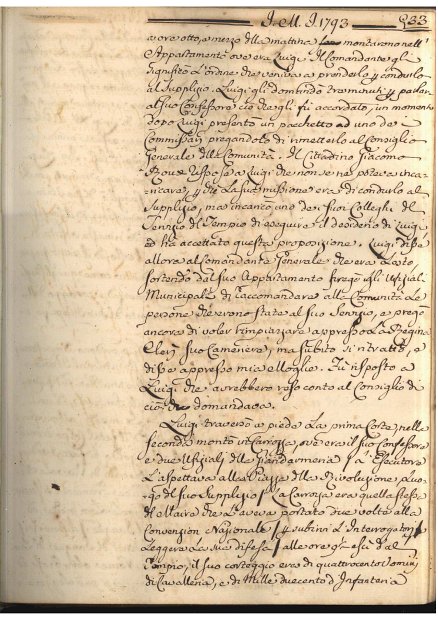 J. M. J. 1793 233
a ore otto, e mezzo della mattina montarono nell'
Appartamento ove era Luigi. Il Comandante gli
significò l'ordine che veniva a prenderlo p condurlo
al Supplizio. Luigi gli domandò tre minuti p parlar
al suo Confessore ciò che gli fù accordato, un momento
dopo Luigi presentò un pacchetto ad uno de
Commissarj pregandolo di rimetterlo al Consiglio
Generale della Comunità. Il Cittadino Giacomo
Roux rispose a Luigi che non se ne poteva inca-
ricare, p che la sua missione era di condurlo al
Supplizio, ma incaricò uno de suoi Colleghi del
Servizio del Tempio di eseguire il desiderio di Luigi
ed ha accettato questa proposizione. Luigi disse
allora al Comandante Generale che era Lesto,
sortendo dal suo Appartamento pregò gli Uffiziali
Municipali di raccomandare alla Comunità Le
persone che erono state al suo Servizio, e pregò
ancora di voler rimpiazzare appresso La Regina
Clery suo Cameriere, ma subito si ritrattò, e
disse appresso mia Moglie. Fù risposto a
Luigi che avrebbero reso conto al Consiglio di
ciò che domandava.
Luigi traversò a piedi La prima Corte, nella
seconda montò in Carrozza, ove era il suo Confessore
e due Uffiziali della Gendarmeria. L'Esecutore
L'aspettava alla Piazza della Rivoluzione, luo-
go del suo Supplizio. La Carrozza era quella stessa
del Maire che L'aveva portato due volte alla
Convenzione Nazionale p subire L'Interrogatorio
Leggere La sua difesa. alle ore
Tempio, il suo corteggio era di quattrocento Uomini
di Cavalleria, e di Mille duecento d'Infanteria